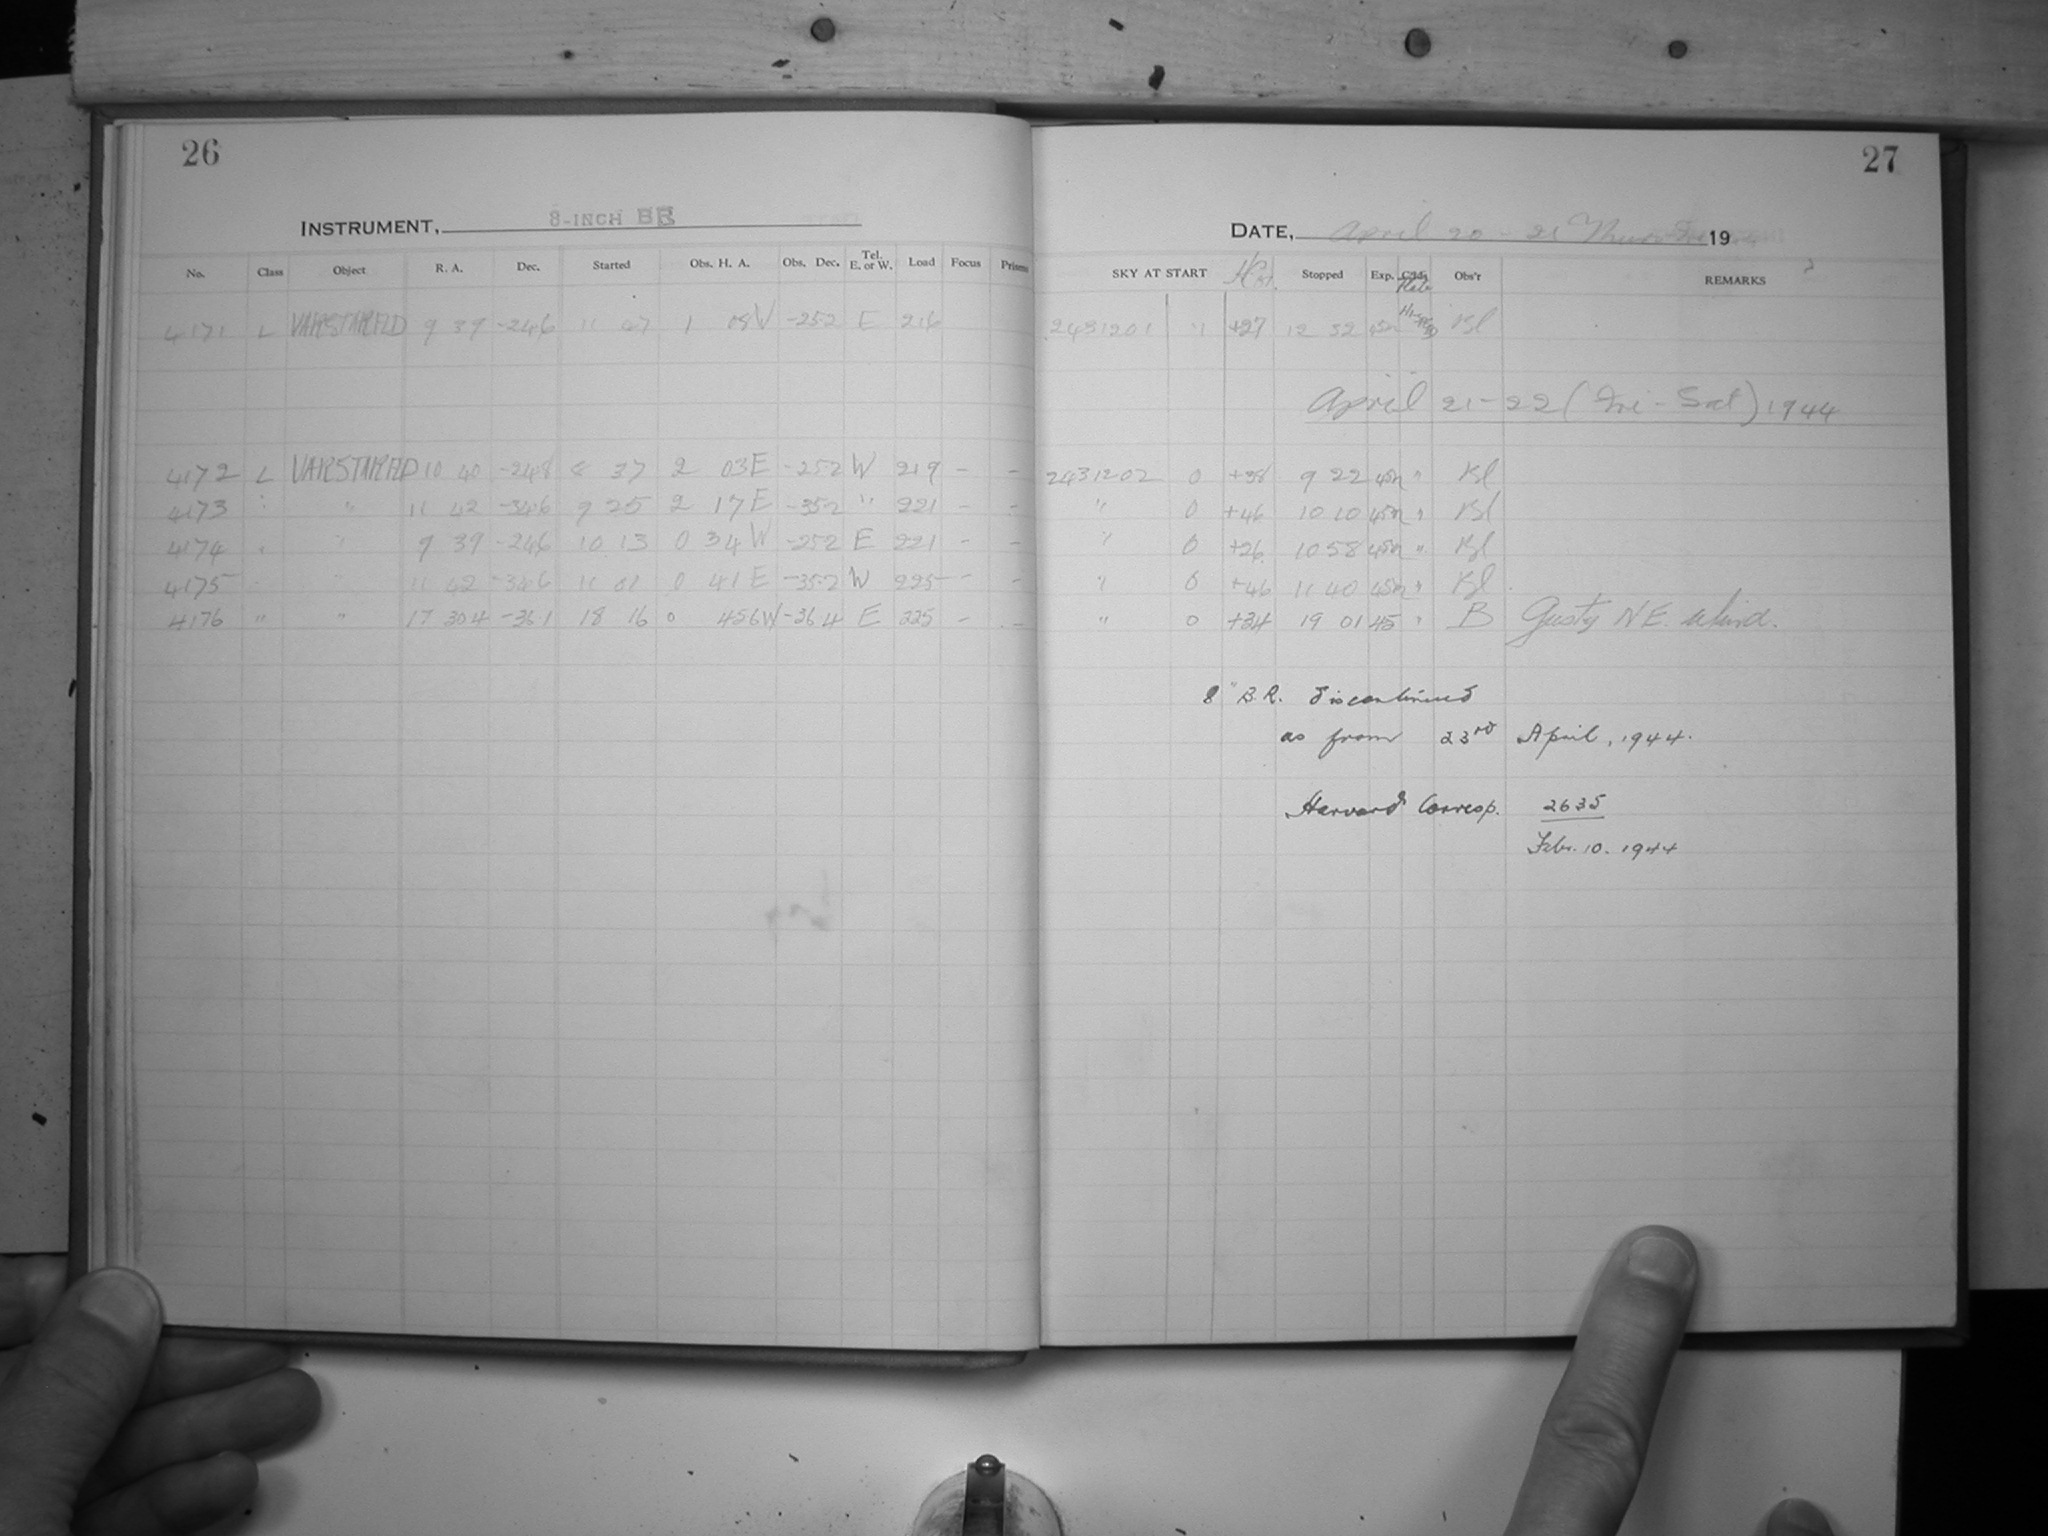 26
INSTRUMENT, 8-INCH BR
No. Class Object R. A. Dec. Started Obs. H. A. Obs. Dec. Tel. E. or W. Load Focus Prisms
4171 L VARSTARFLD 9 39 -246 11 47 1 W -252 E 216
4172 L VARSTARFLD 10 40 -248 8 37 2 03E -252 W 219 - -
4173 " " 11 42 -346 9 25 2 17E -352 " 221 - -
4174 " " 9 39 -246 10 13 0 34W -252 E 221 - -
4175 11 42 -346 11 01 0 41E -352 W 225 - -
4176 " " 17 304 -361 18 16 0 456W -364 E 225 - -
27
DATE, April 20-21 19
SKY AT START Stopped Exp. Plate Obs'r REMARKS
2431201 " +27 12 32 45m Bl
April 21-22 (Fri-Sat) 1944
2431202 0 +38 9 22 45m " Bl
" 0 +46 10 10 45m " Bl
" 0 +26 10 58 45m " Bl
" 0 +46 11 40 45m " Bl
" 0 +34 19 01 45 " B Gusty NE. Wind.
8" B.R. discontinued
as from 23rd April, 1944.
Harvard Corresp. 2635
Feb. 10. 1944